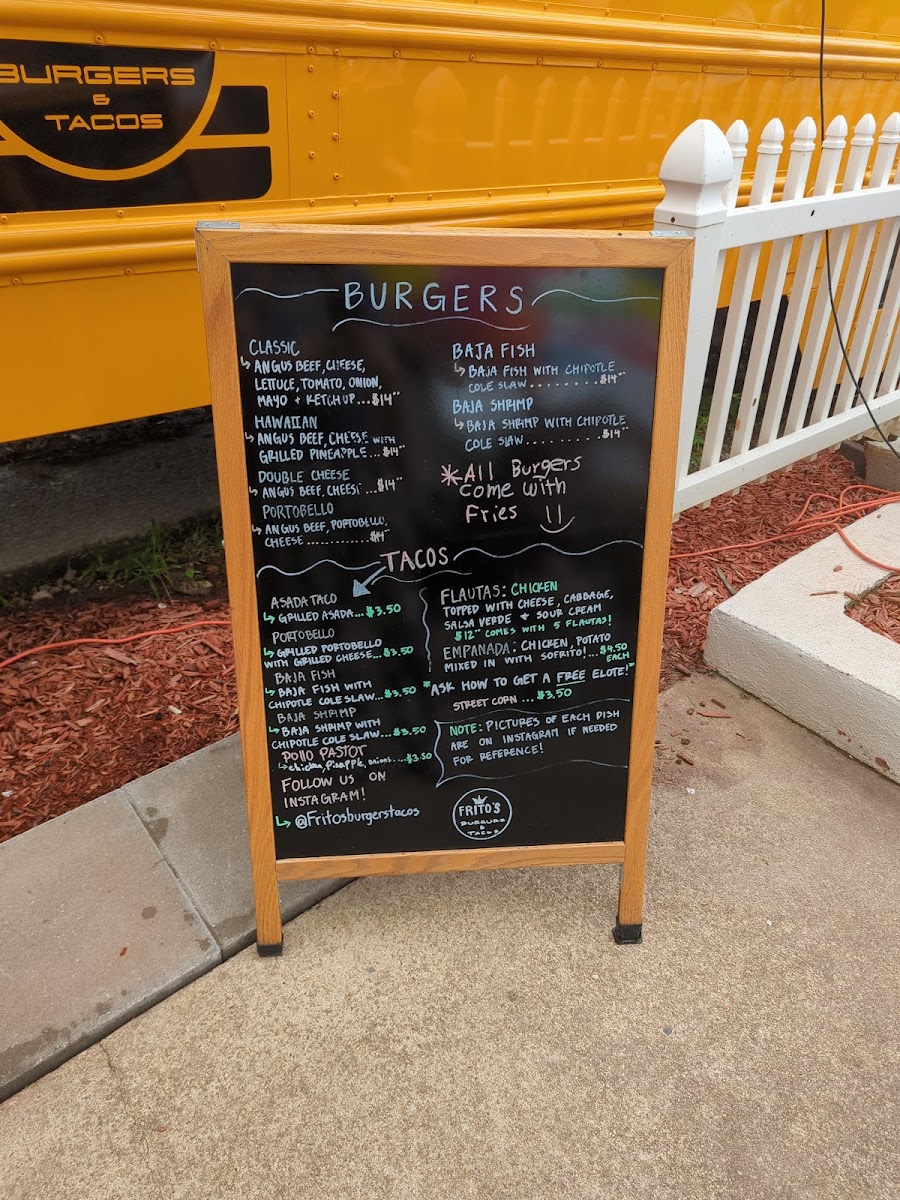 BURGERS
&
TACOS
BURGERS
CLASSIC
ANGUS BEEF, CHEESE,
LETTUCE, TOMATO, ONION,
MAYO + KETCHUP...$14
HAWAIIAN
ANGUS BEEF, CHEESE WITH
GRILLED PINEAPPLE...$14
DOUBLE CHEESE
ANGUS BEEF, CHEESE...$14
PORTOBELLO
ANGUS BEEF, PORTOBELLO,
CHEESE............$14
BAJA FISH
BAJA FISH WITH CHIPOTLE
COLE SLAW.........$14
BAJA SHRIMP
BAJA SHRIMP WITH CHIPOTLE
COLE SLAW..........$14
*All Burgers
come with
Fries
TACOS
ASADA TACO
GRILLED ASADA...$3.50
PORTOBELLO
GRILLED PORTOBELLO
WITH GRILLED CHEESE...$3.50
BAJA FISH
BAJA FISH WITH
CHIPOTLE COLE SLAW...$3.50
BAJA SHRIMP
BAJA SHRIMP WITH
CHIPOTLE COLE SLAW...$3.50
POllO PASTOR
chicken, pineapple, onions....$3.50
FOLLOW US ON
INSTAGRAM!
@Fritosburgerstacos
FLAUTAS: CHICKEN
TOPPED WITH CHEESE, CABBAGE,
SALSA VERDE + SOUR CREAM
$12 COMES WITH 5 FLAUTAS!
EMPANADA: CHICKEN, POTATO
MIXED IN WITH SOFRITO!...$4.50
EACH
*ASK HOW TO GET A FREE ELOTE!*
STREET CORN...$3.50
NOTE: PICTURES OF EACH DISH
ARE ON INSTAGRAM IF NEEDED
FOR REFERENCE!
FRITO'S
BURGERS
&
TACOS